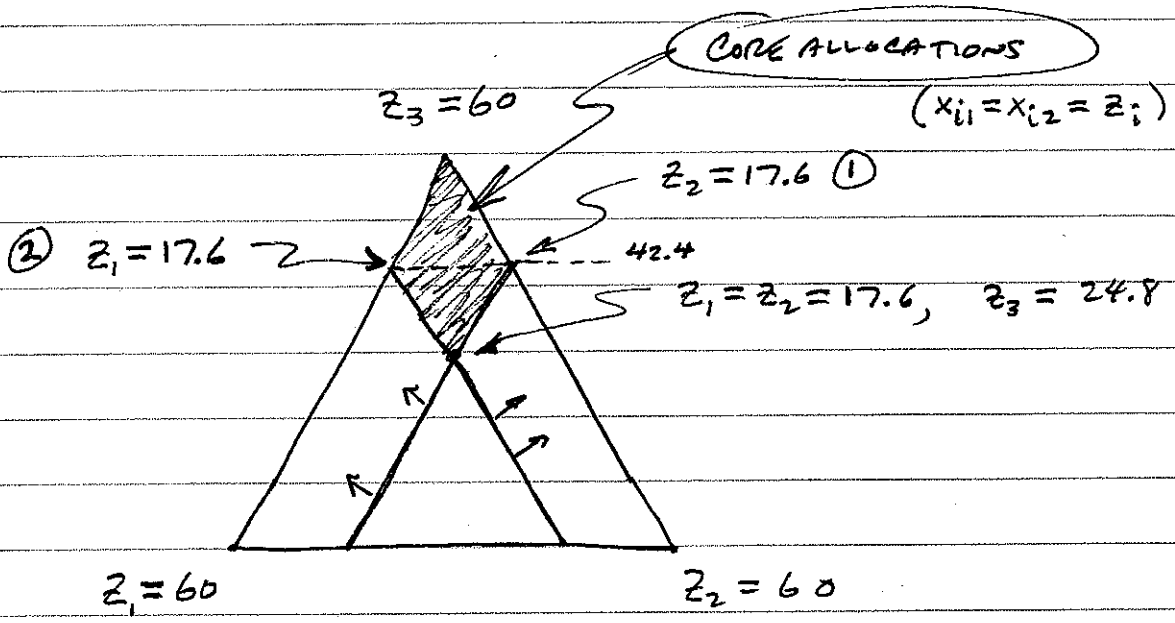 CORE ALLOCATIONS
(x_{i1} = x_{i2} = z_i)
z_3 = 60
z_2 = 17.6 ①
② z_1 = 17.6
42.4
z_1 = z_2 = 17.6, z_3 = 24.8
z_1 = 60
z_2 = 60